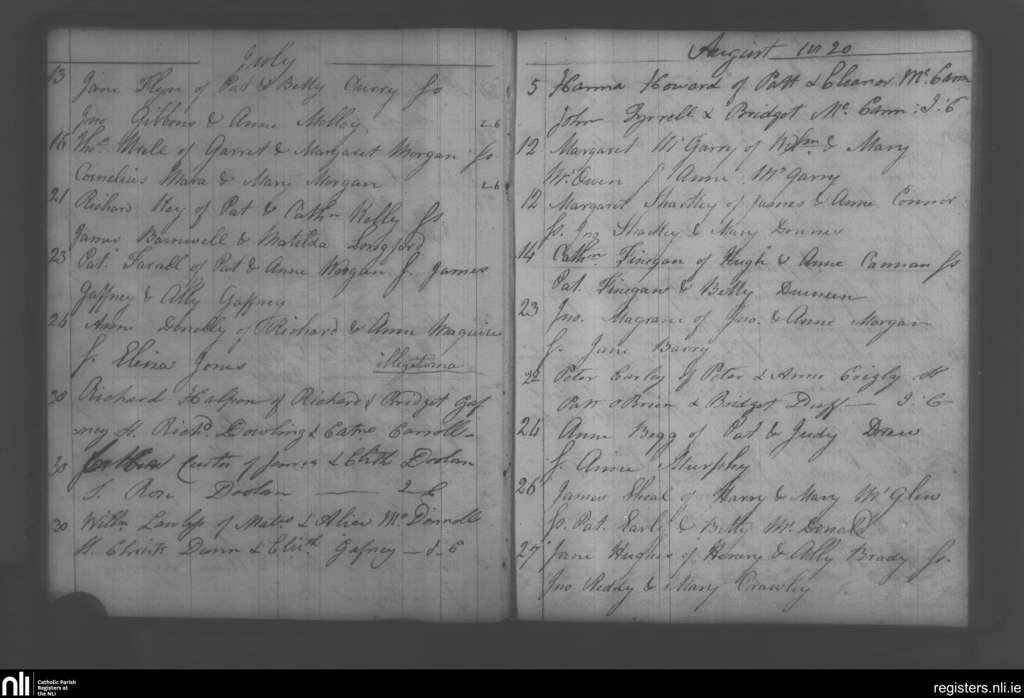 July
13 Jane Flyn of Pat & Betty Curry Ss
Jno Gibbons & Anne Molloy 2-6
15 Thos. of Garret & Margaret Morgan Ss
Cornelius Mara & Mary Morgan 2-6
21 Richard Key of Pat & Cathn Kelly Ss
James Barnwell & Matilda Longford
23 Pat. Farall of Pat & Anne Morgan S. James
Gaffney & Ally Gaffney
26 Anne Donolly of Richard & Anne Maguire
S. Eliza Jones illegetoma
30 Richard Halpon of Richard & Bridget Gaf
ney St. Richd. Dowling & Catne Carroll
30 Curtis of James & Elith Doolan
S. Rose Doolan
30 Willm Lawless of & Alice Mc Donnell
St. Christr Dunn & Elizth Gafney
August 1820
5 Hanna Howard of Patt & Eleanor Mc Cann
John Tyrrell & Bridget Mc Cann
12 Margaret Mc Garry of Wm & Mary
Mc Owen S Anne Mc Garry
12 Margaret Sharkey of James & Anne Connor
Ss. Jno Sharkey & Mary Downes
14 Cathn Finegan of Hugh & Anne Cannan Ss
Pat. Finegan & Betty
23 Jno. Magrane of Jno. & Anne Morgan
S. Jane Barry
22 Peter Carley of Peter & Anne St
Patt O Brien & Bridget Duff
24 Anne Begg of Pat & Judy Drew
S. Annie Murphy
26 James Sheal of Harry & Mary Mc Glew
Ss. Pat. Earl & Betty Mc Donald
27 Jane Hughes of Henery & Ally Brady Ss.
Jno Reddy & Mary Crawley
nli Catholic Parish
Registers at
the NLI
registers.nli.ie